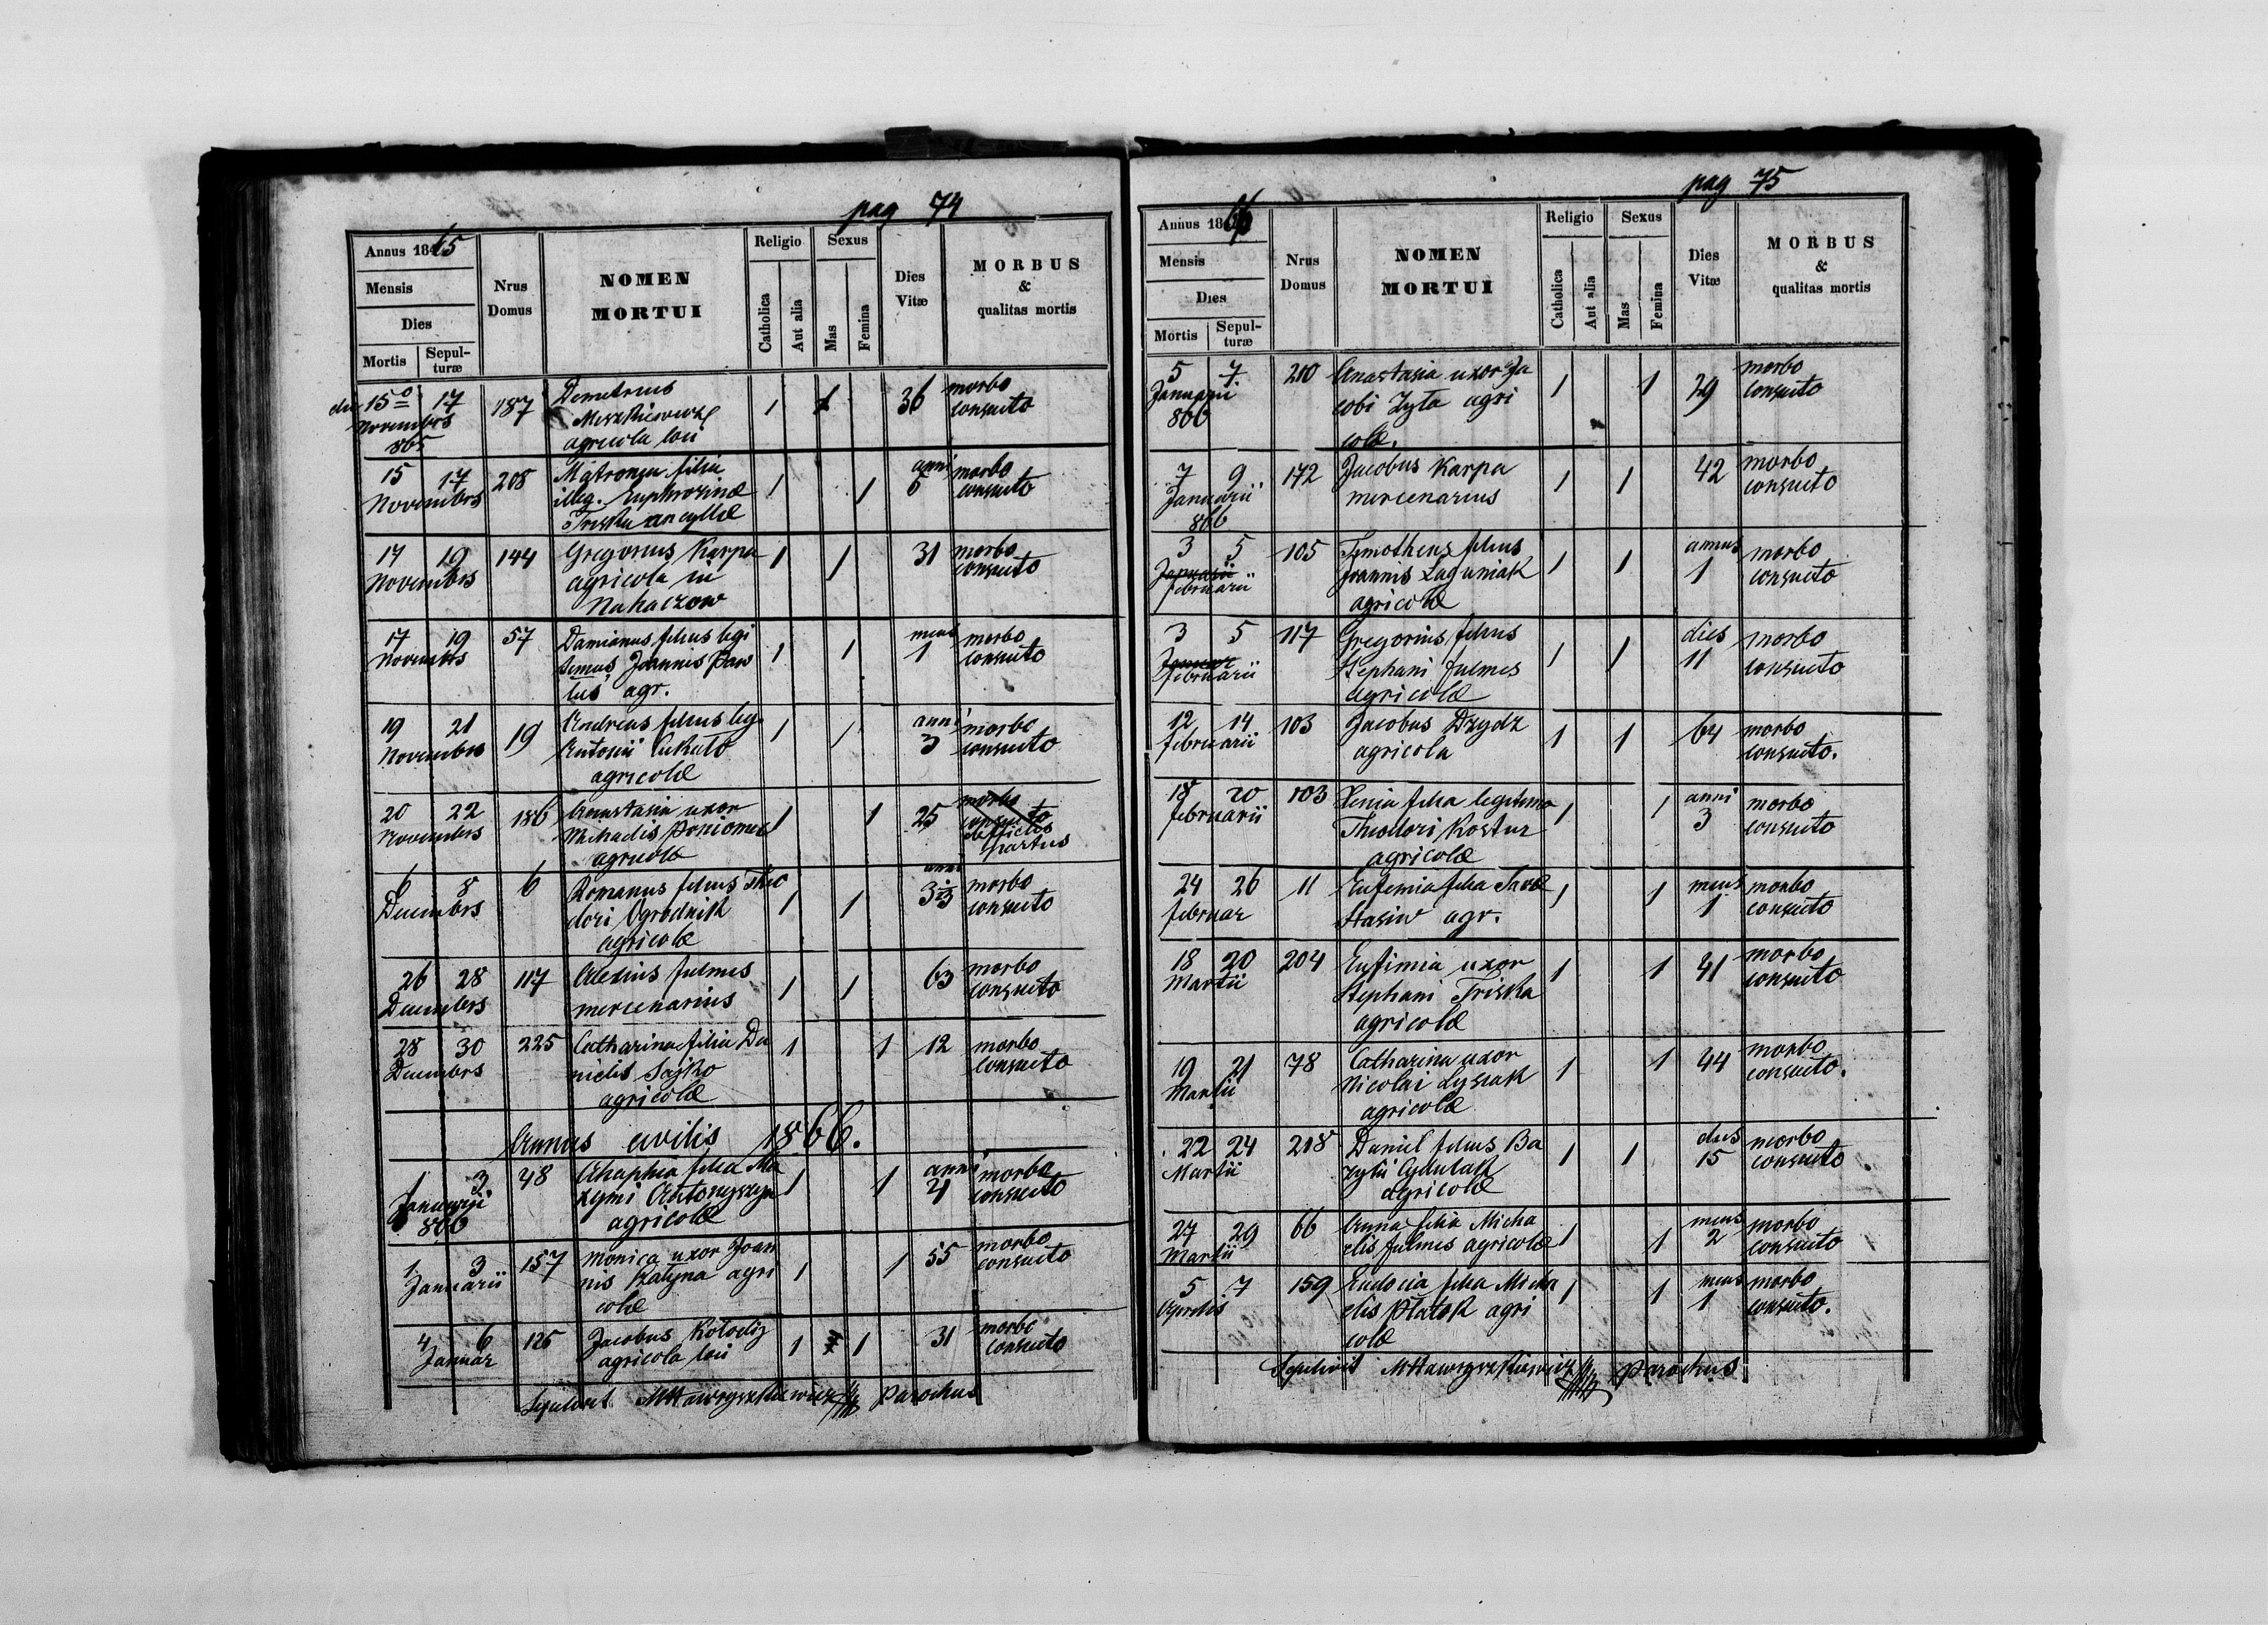 pag 74
Annus 1865
Mensis
Dies
Mortis
Sepul-
turæ
Nrus
Domus
NOMEN
MORTUI
Religio
Catholica
Aut alia
Sexus
Mas
Femina
Dies
Vitæ
MORBUS
&
qualitas mortis
die 15º 17 187 Demetrius 1 1 36 morbo
Novembris agricola loci consueto
865
15 17 208 Matrona filia 1 1 anni 6 morbo
Novembris illeg. Euphrosinæ consueto
Triska ancyllæ
17 19 144 Gregorius Karpa 1 1 31 morbo
Novembris agricola in consueto
Nahaczow
17 19 57 Damianus filius legi 1 1 mens 1 morbo
Novembris timus Joannis Paw consueto
lus agr.
19 21 19 Andreas filius leg. 1 1 anni 3 morbo
Novembris Antonii consueto
agricolæ
20 22 186 Anastasia uxor 1 1 25 morbo
Novembris Michaelis consueto
agricolæ partus
6 8 6 Romanus filius Theo 1 1 anni 3 morbo
Decembris dori Ogrodnik consueto
agricolæ
26 28 117 Alexius fulmes 1 1 63 morbo
Decembris mercenarius consueto
28 30 225 Catharina filia Da 1 1 12 morbo
Decembris nielis Sajko consueto
agricolæ
Annus civilis 1866.
1 3 48 Ahaphia filia Ma 1 1 anni morbo
Januarii xymi Antonyszyn consueto
866 agricolæ
1 3 157 Monica uxor Joan 1 1 55 morbo
Januarii nis agri consueto
colæ
4 6 126 Jacobus Kołodij 1 1 31 morbo
Januar agricola loci consueto
Sepelivit MHawryszkiewicz Parochus
pag 75
Annus 1866
Mensis
Dies
Mortis
Sepul-
turæ
Nrus
Domus
NOMEN
MORTUI
Religio
Catholica
Aut alia
Sexus
Mas
Femina
Dies
Vitæ
MORBUS
&
qualitas mortis
5 7 210 Anastasia uxor Ja 1 1 29 morbo
Januarii cobi Zyta agri consueto
866 colæ.
7 9 172 Jacobus Karpa 1 1 42 morbo
Januarii mercenarius consueto
866
3 5 105 Tymotheus filius 1 1 annus 1 morbo
Januarii Joannis Laguniak consueto
februarii agricolæ
3 5 117 Gregorius filius 1 1 dies 11 morbo
Januar Stephani fulmes consueto
februarii agricolæ
12 14 103 Jacobus Dzydz 1 1 64 morbo
februarii agricola consueto.
18 20 103 Xenia filia legitima 1 1 anni 3 morbo
februarii Theodori Kostur consueto
agricolæ
24 26 11 Eufemia filia Savæ 1 1 mens 1 morbo
februar Stasiw agr. consueto
18 20 204 Eufimia uxor 1 1 41 morbo
Martii Stephani Triska consueto
agricolæ
19 21 78 Catharina uxor 1 1 44 morbo
Martii Nicolai Lysiak consueto.
agricolæ
22 24 218 Daniel filius Ba 1 1 dies 15 morbo
Martii zylii Cydulak consueto
agricolæ
27 29 66 Anna filia Micha 1 1 mens 2 morbo
Martii elis fulmes agricolæ consueto
5 7 159 Eudocia filia Micha 1 1 mens 1 morbo
Aprilis elis Płatek agri consueto.
colæ
Sepelivit MHawryszkiewicz Parochus